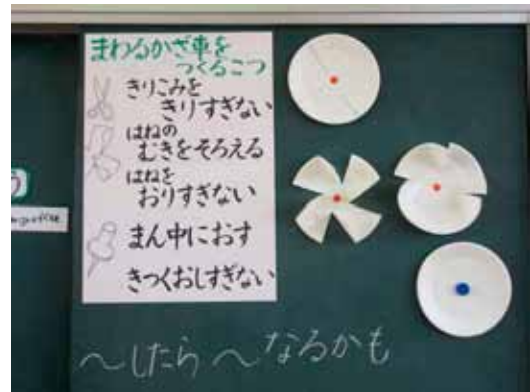 まわるかざ車を
つくるこつ
きりこみを
きりすぎない
はねの
むきをそろえる
はねを
おりすぎない
まん中におす
きつくおしすぎない
う
～したら～なるかも